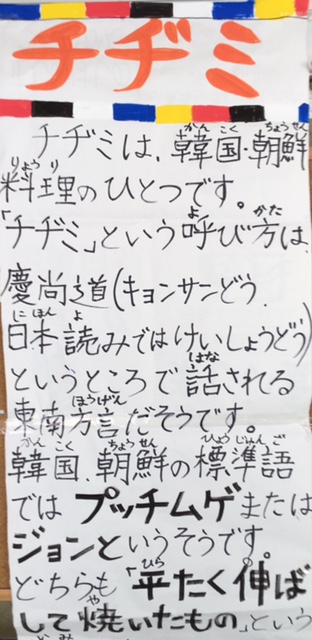 チヂミ
チヂミは、韓国・朝鮮
料理のひとつです。
「チヂミ」という呼び方は、
慶尚道(キョンサンどう、
日本読みではけいしょうどう)
というところで話される
東南方言だそうです。
韓国、朝鮮の標準語
では プッチムゲまたは
ジョンというそうです。
どちらも「平たく伸ば
して焼いたもの」という